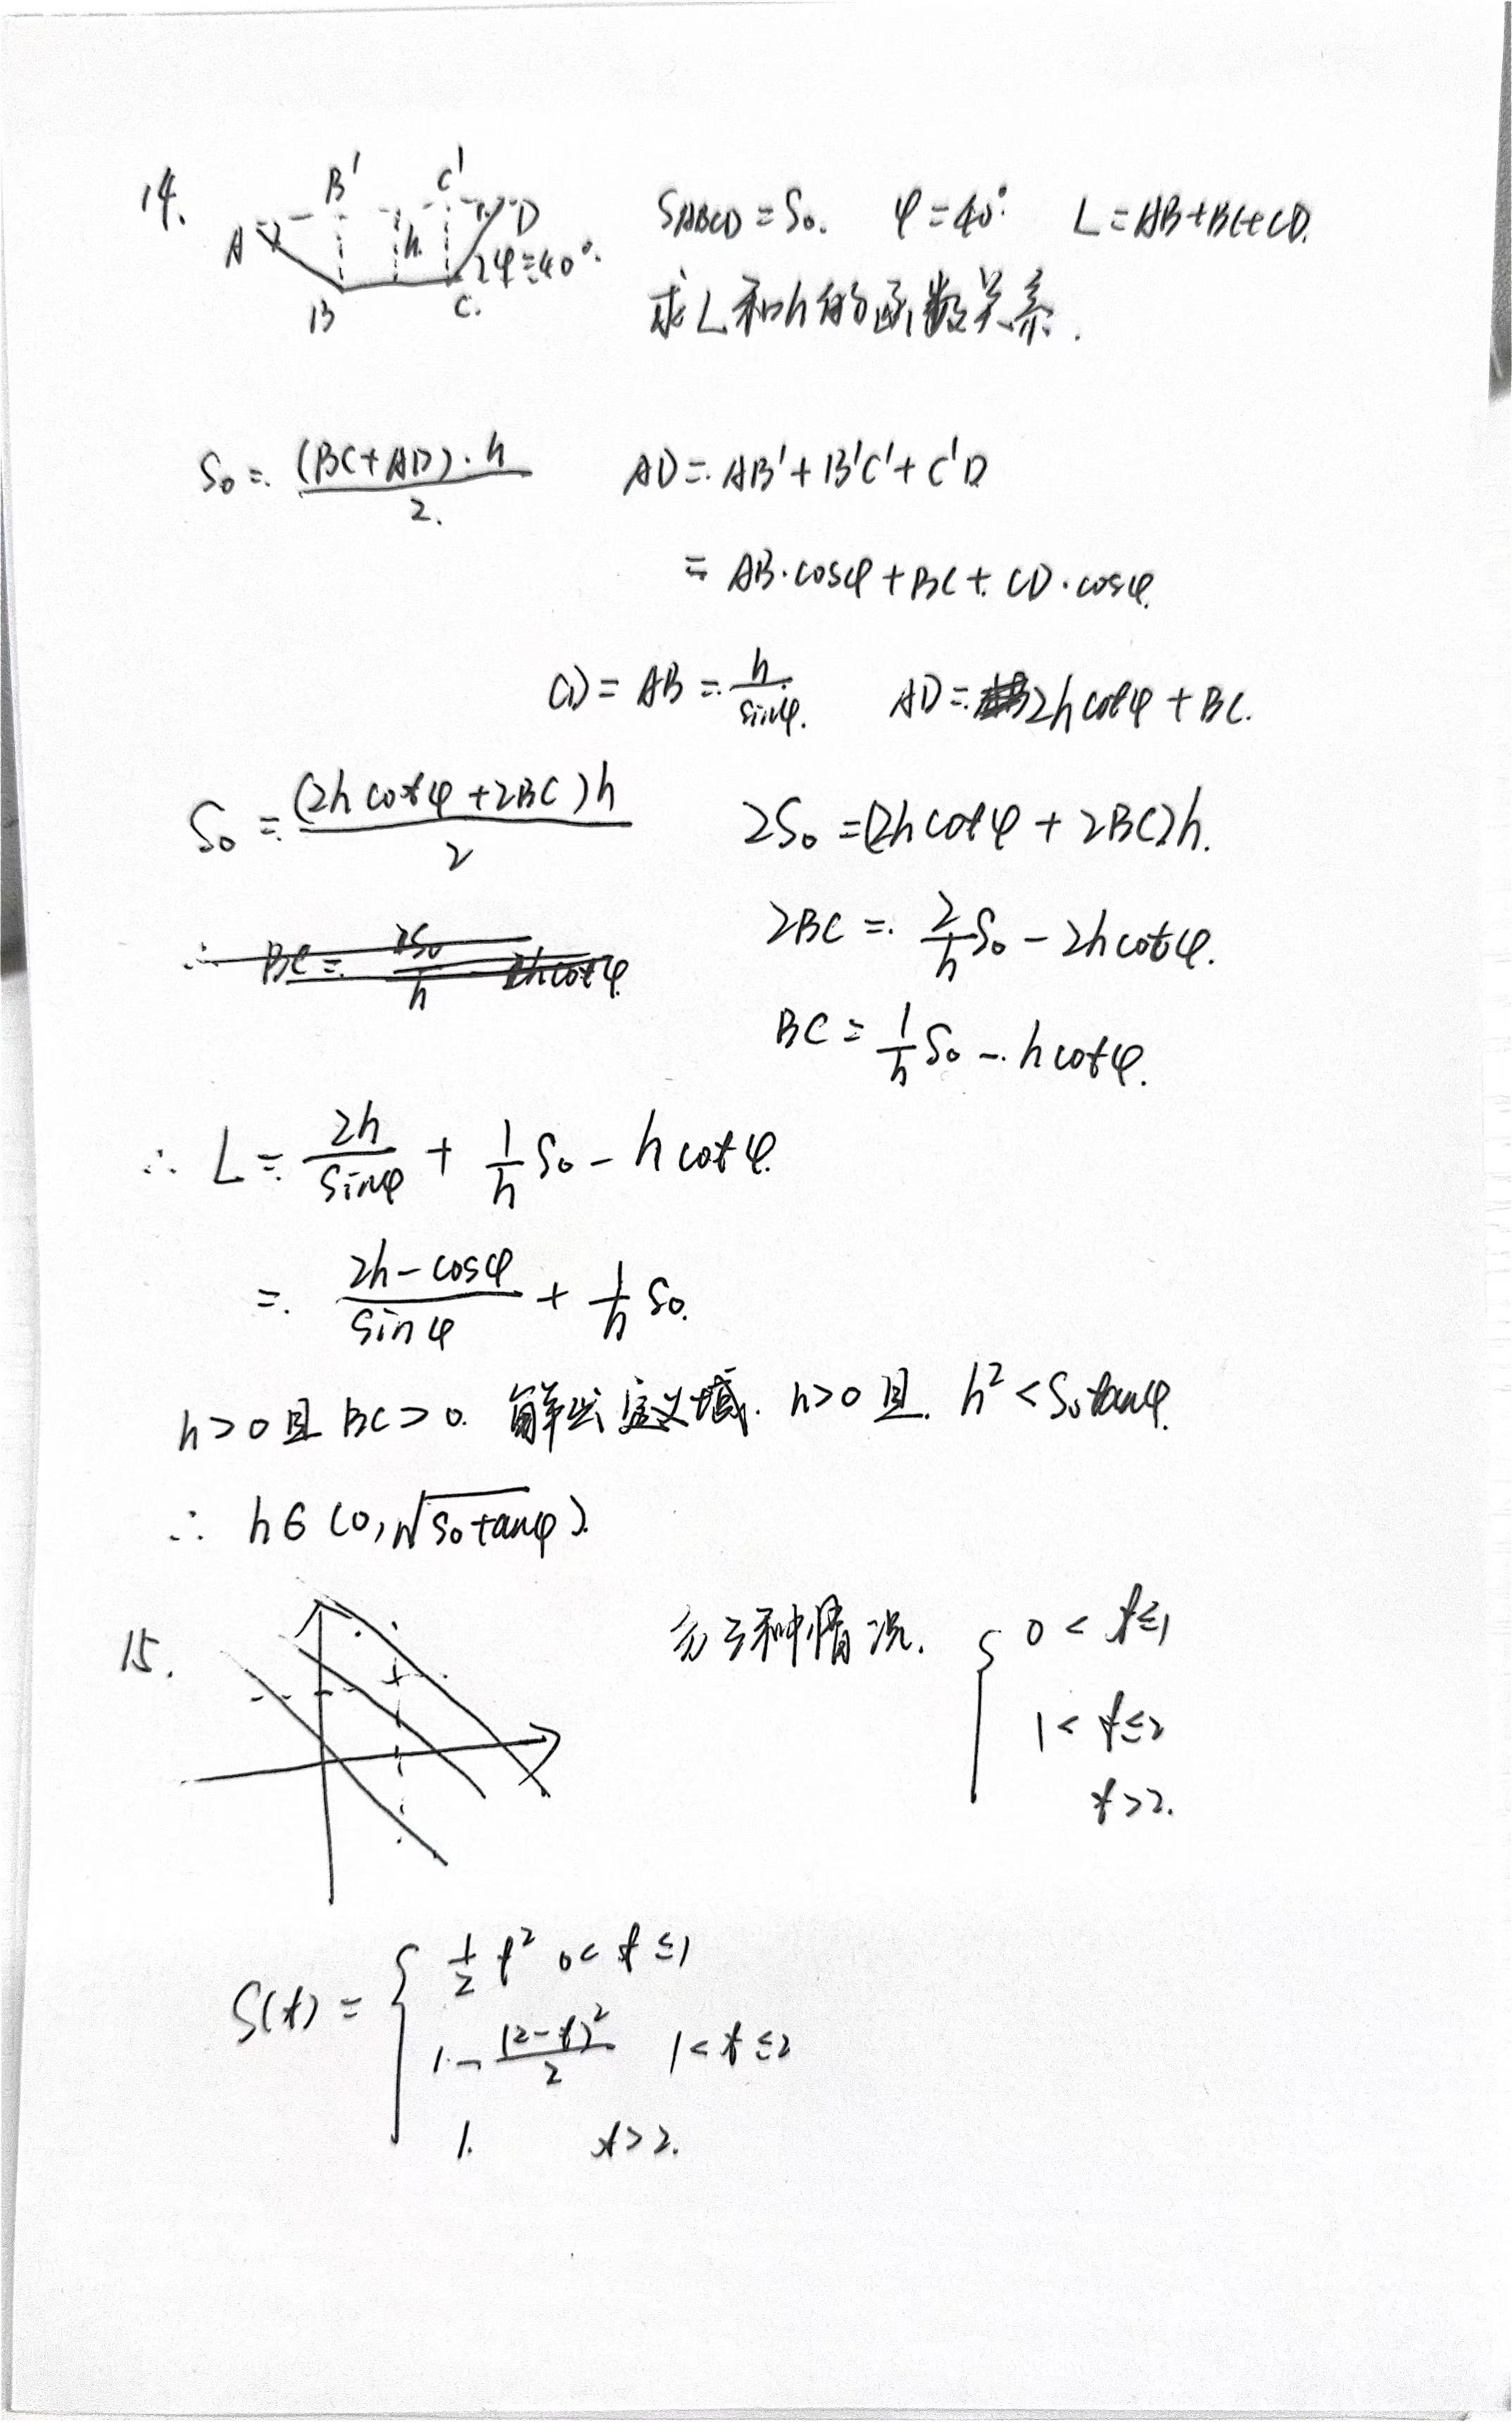 14. A B' C' D h φ=40°. B C. S_ABCD = S₀. φ=40°. L=AB+BC+CD.
求L和h的函数关系.
S₀ = (BC+AD)·h / 2. AD = AB'+B'C'+C'D
= AB·cosφ + BC + CD·cosφ.
CD = AB = h / sinφ. AD = 2hcotφ + BC.
S₀ = (2hcotφ+2BC)h / 2 2S₀ = (2hcotφ + 2BC)h.
∴ BC = 2S₀ / h - 2hcotφ 2BC = 2/h S₀ - 2hcotφ.
BC = 1/h S₀ - hcotφ.
∴ L = 2h / sinφ + 1/h S₀ - hcotφ.
= 2h-cosφ / sinφ + 1/h S₀.
h>0且BC>0. 解出定义域. h>0且. h²<S₀tanφ.
∴ h∈(0,√S₀tanφ).
15. 分三种情况. { 0<t≤1
1<t≤2
t>2.
S(t) = { 1/2 t² 0<t≤1
1-(2-t)²/2 1<t≤2
1. t>2.